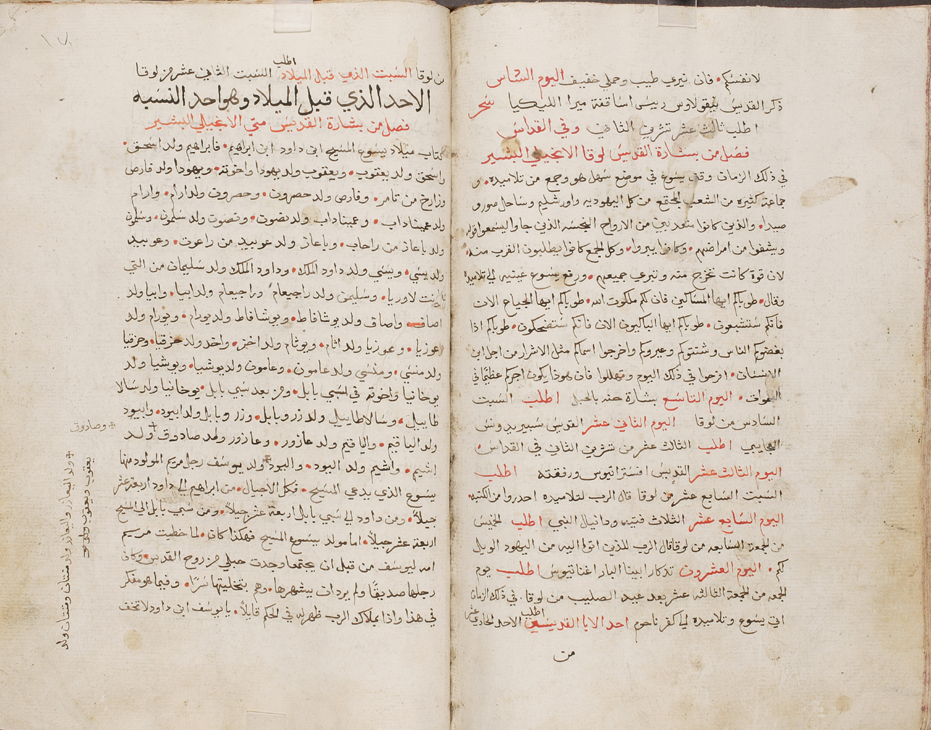 لانفسكم • فان نيري طيب وحملي خفيف اليوم السادس
ذكر القديس نيقولاوس رييس اساقفة ميرا الليكيا سحر
اطلب ثالث عشر تشرين الثاني وفي القداس
فصل من بشارة القديس لوقا الانجيلي البشير
في ذلك الزمان وقف يسوع في موضع سهل هو وجمع من تلاميذه • و
جماعة كثيره من الشعب المجتمع من كل اليهوديه واورشليم وساحل صور و
صيدا • والذين كانوا معذبين من الارواح النجسه الذي جاوا ليسمعوا قوله
ويشفوا من امراضهم • وكانوا يبروا • وكل الجمع كانوا يطلبون القرب منه
لان قوة كانت تخرج منه وتبري جميعهم • ورفع يسوع عينيه الى تلاميذه
وقال • طوباكم ايها المساكين فان لكم ملكوت الله • طوباكم ايها الجياع الان
فانكم ستشبعون • طوباكم ايها الباكيون الان فانكم ستضحكون • طوباكم اذا
بغضوكم الناس وشتتوكم وعيروكم واخرجوا اسماكم مثل الاشرار من اجل ابن
الانسان • افرحوا في ذلك اليوم وتهللوا فان هوذا يكون اجركم عظيما في
السموات • اليوم التاسع بشارة حنه بالحبل اطلب السبت
السادس من لوقا اليوم الثاني عشر القديس سبيريدونس
العجايبي اطلب الثالث عشر من تشرين الثاني في القداس
اليوم الثالث عشر القديس افستراتيوس ورفقته اطلب
السبت السابع عشر من لوقا قال الرب لتلاميذه احدروا من الكتبه
اليوم السابع عشر الثلاث فتيه ودانيال النبي اطلب الخميس
من الجمعة السابعه من لوقا قال الرب للذين اتوا اليه من اليهود الويل
لكم • اليوم العشرون تذكار ابينا البار اغناتيوس اطلب يوم
الجمعه من الجمعة الثالثه عشر بعد عيد الصليب من لوقا في ذلك الزمان
اتى يسوع وتلاميذه الى كفرناحوم احد الابا القديسين اطلب الاحد الحادي عشر
من
ن لوقا السبت الذي قبل الميلاد اطلب السبت الثاني عشر من لوقا
الاحد الذي قبل الميلاد وهو احد النسبه
فصل من بشارة القديس متي الانجيلي البشير
كتاب ميلاد يسوع المسيح ابن داود ابن ابراهيم • فابراهيم ولد اسحق •
واسحق ولد يعقوب • ويعقوب ولد يهودا واخوته • ويهودا ولد فارص
وزارخ من تامر • وفارص ولد حصرون • وحصرون ولد ارام • وارام
ولد عميناداب • وعميناداب ولد نصون • ونصون ولد سلمون • وسلمون
ولد باعاز من راحاب • وباعاز ولد عوبيد من راعوت • وعوبيد
ولد يسي • ويسي ولد داود الملك • وداود الملك ولد سليمان من التي
كانت لاوريا • وسليمن ولد راجيعام • وراجيعام ولد ابيا • وابيا ولد
اصاف • واصاف ولد يوشافاط • ويوشافاط ولد يورام • ويورام ولد
عوزيا • وعوزيا ولد اثام • ويوثام ولد احز • واحز ولد حزقيا • وحزقيا
ولد منسي • ومنسي ولد عامون • وعامون ولد يوشيا • ويوشيا ولد
يوخانيا واخوته في سبي بابل • ومن بعد سبي بابل • يوخانيا ولد سالا
طاييل • وسالاطاييل ولد زروبابل • وزروبابل ولد ابيود • وابيود
ولد الياقيم • والياقيم ولد عازور • وعازور ولد صادوق ✢ ولد
اشيم • واشيم ولد اليود • واليود ✢ ولد يوسف رجل مريم المولود منها
يسوع الذي يدعي المسيح • فكل الاجيال • من ابراهيم الى داود اربعة عشر
جيلا • ومن داود الى سبي بابل اربعة عشر جيلا • ومن سبي بابل الى المسيح
اربعة عشر جيلا • اما مولد يسوع المسيح فهكذا كان • لما خطبت مريم
امه ليوسف من قبل ان يجتمعا وجدت حبلي من روح القدس • وكان
رجلها صديقا ولم يرد ان يشهرها • وهم بتخليتها سرا • وفيما هو مفكر
في هذا واذا بملاك الرب ظهر له في الحلم قايلا • يا يوسف ابن داود لا تخف
✢ وصادوق
✢ ولد اليعازر واليعازر ولد متتان ومتتان ولد
يعقوب ويعقوب